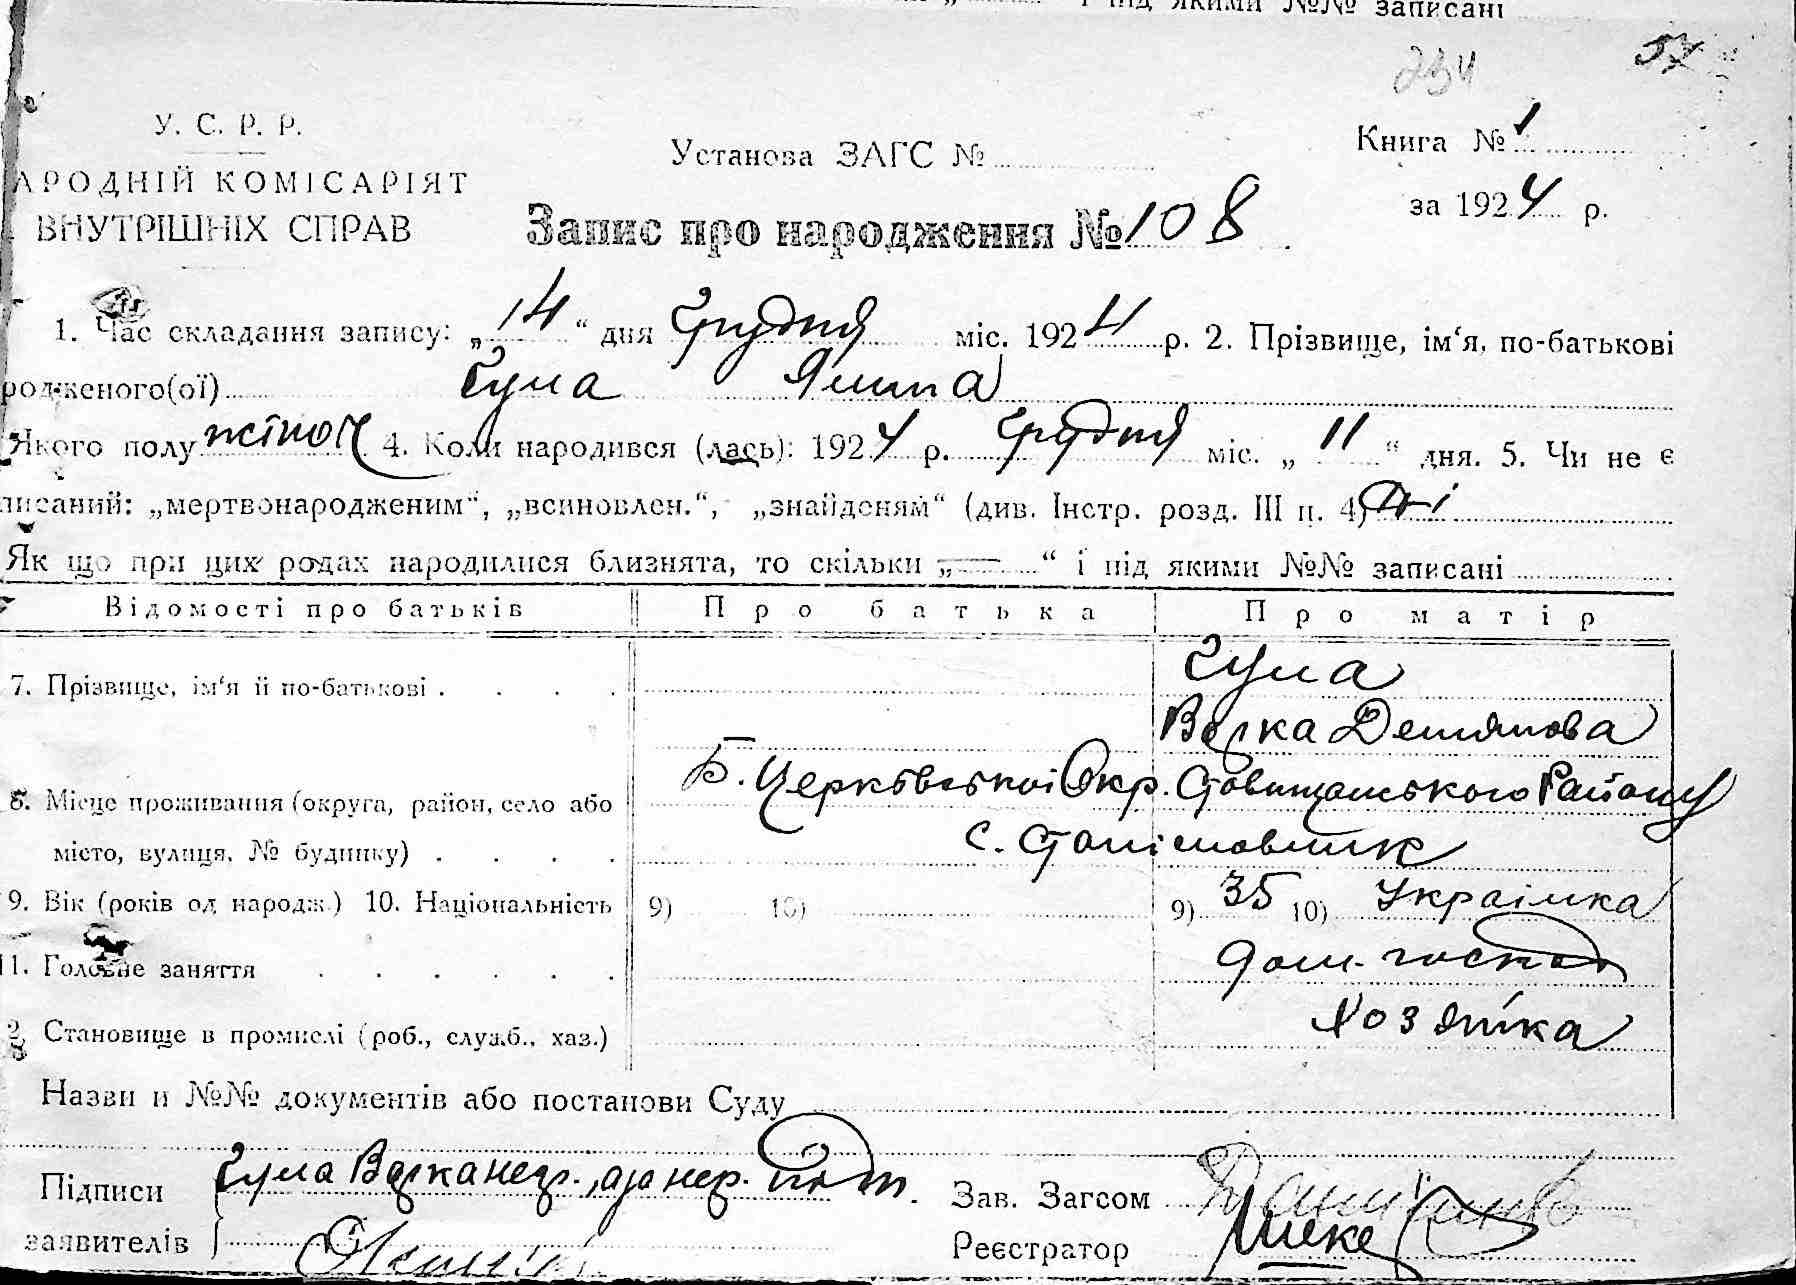 і під якими №№ записані
234
57
У. С. Р. Р.
АРОДНІЙ КОМІСАРІЯТ
ВНУТРІШНІХ СПРАВ
Установа ЗАГС №
Книга № 1
за 1924 р.
Запис про народження № 108
1. Час складання запису: „14“ дня Грудня міс. 1924 р. 2. Прізвище, ім‘я, по-батькові
родженого(ої) Гума
Якого полу жіноч 4. Коли народився (лась): 1924 р. Грудня міс. „11“ дня. 5. Чи не є
писаний: „мертвонародженим“, „всиновлен.“, „знайденям“ (див. Інстр. розд. III п. 4) Ні
Як що при цих родах народилися близнята, то скільки „—“ і під якими №№ записані
Відомості про батьків Про батька Про матір
7. Прізвище, ім‘я й по-батькові . . . . Гума
Демянова
Б. Церківської Окр. Ставищанського Району
8. Місце проживання (округа, район, село або
с.
місто, вулиця, № будинку) . . . .
9. Вік (років од народж.) 10. Національність 9) 10) 9) 35 10) Украінка
11. Головне заняття . . . . . . дом. господ
Хозяйка
2. Становище в промислі (роб., служб., хаз.)
Назви й №№ документів або постанови Суду
Підписи Гума
заявителів
Зав. Загсом
Реєстратор